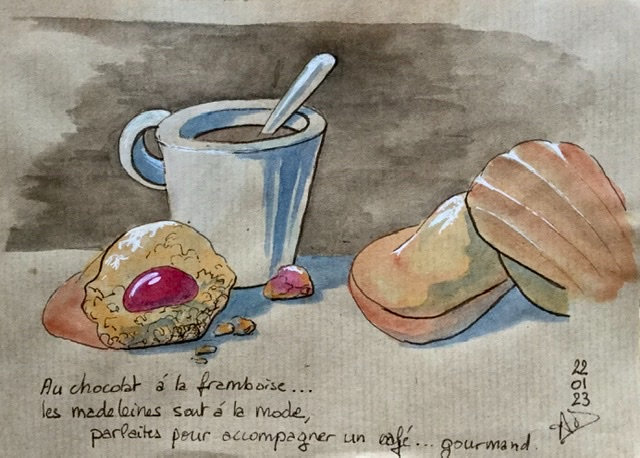 Au chocolat á la framboise...
les madeleines sont á la mode,
parfaites pour accompagner un café... gourmand.
22
01
23